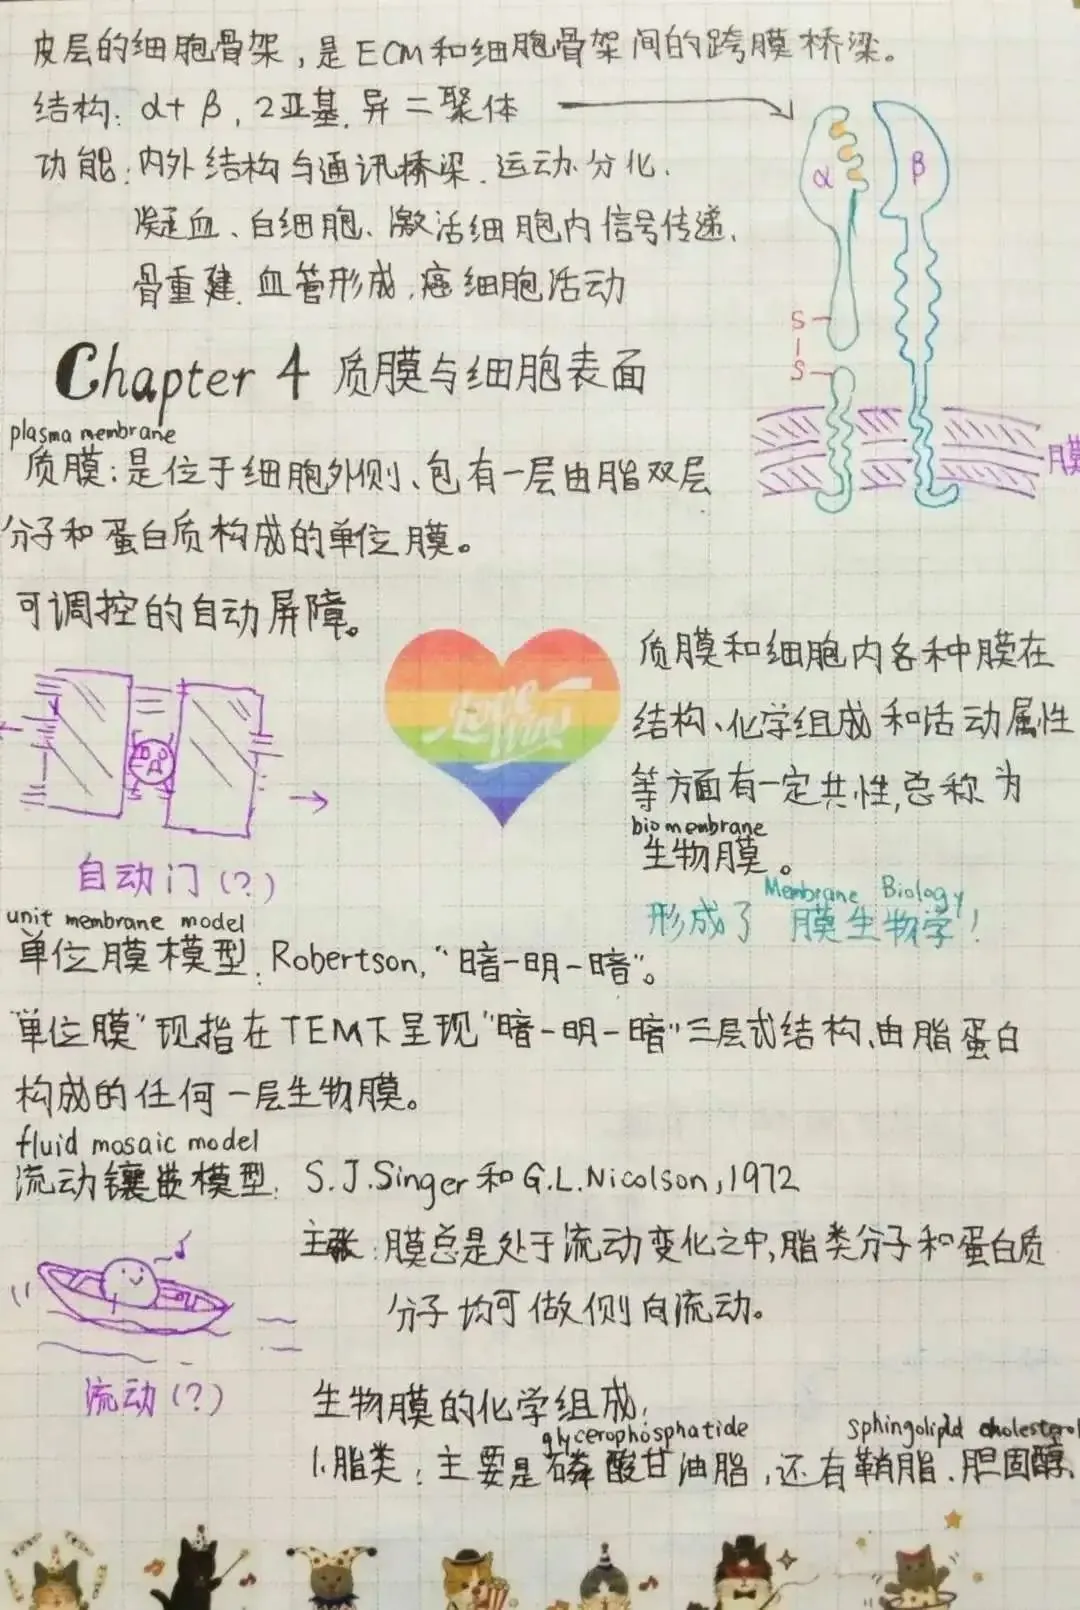 皮层的细胞骨架，是ECM和细胞骨架间的跨膜桥梁。
结构：α+β，2亚基、异二聚体
功能：内外结构与通讯桥梁、运动、分化、
凝血、白细胞、激活细胞内信号传递、
骨重建、血管形成、癌细胞活动
α
β
S
S
膜
Chapter 4 质膜与细胞表面
plasma membrane
质膜：是位于细胞外侧、包有一层由脂双层
分子和蛋白质构成的单位膜。
可调控的自动屏障。
自动门(?)
质膜和细胞内各种膜在
结构、化学组成和活动属性
等方面有一定共性，总称为
biomembrane
生物膜。
Membrane Biology
形成了膜生物学！
unit membrane model
单位膜模型：Robertson，“暗-明-暗”。
“单位膜”现指在TEM下呈现“暗-明-暗”三层式结构、由脂蛋白
构成的任何一层生物膜。
fluid mosaic model
流动镶嵌模型：S.J.Singer和G.L.Nicolson，1972
主张：膜总是处于流动变化之中，脂类分子和蛋白质
分子均可做侧向流动。
流动(?)
生物膜的化学组成：
glycerophosphatide sphingolipid cholesterol
1.脂类：主要是磷酸甘油脂，还有鞘脂、胆固醇、